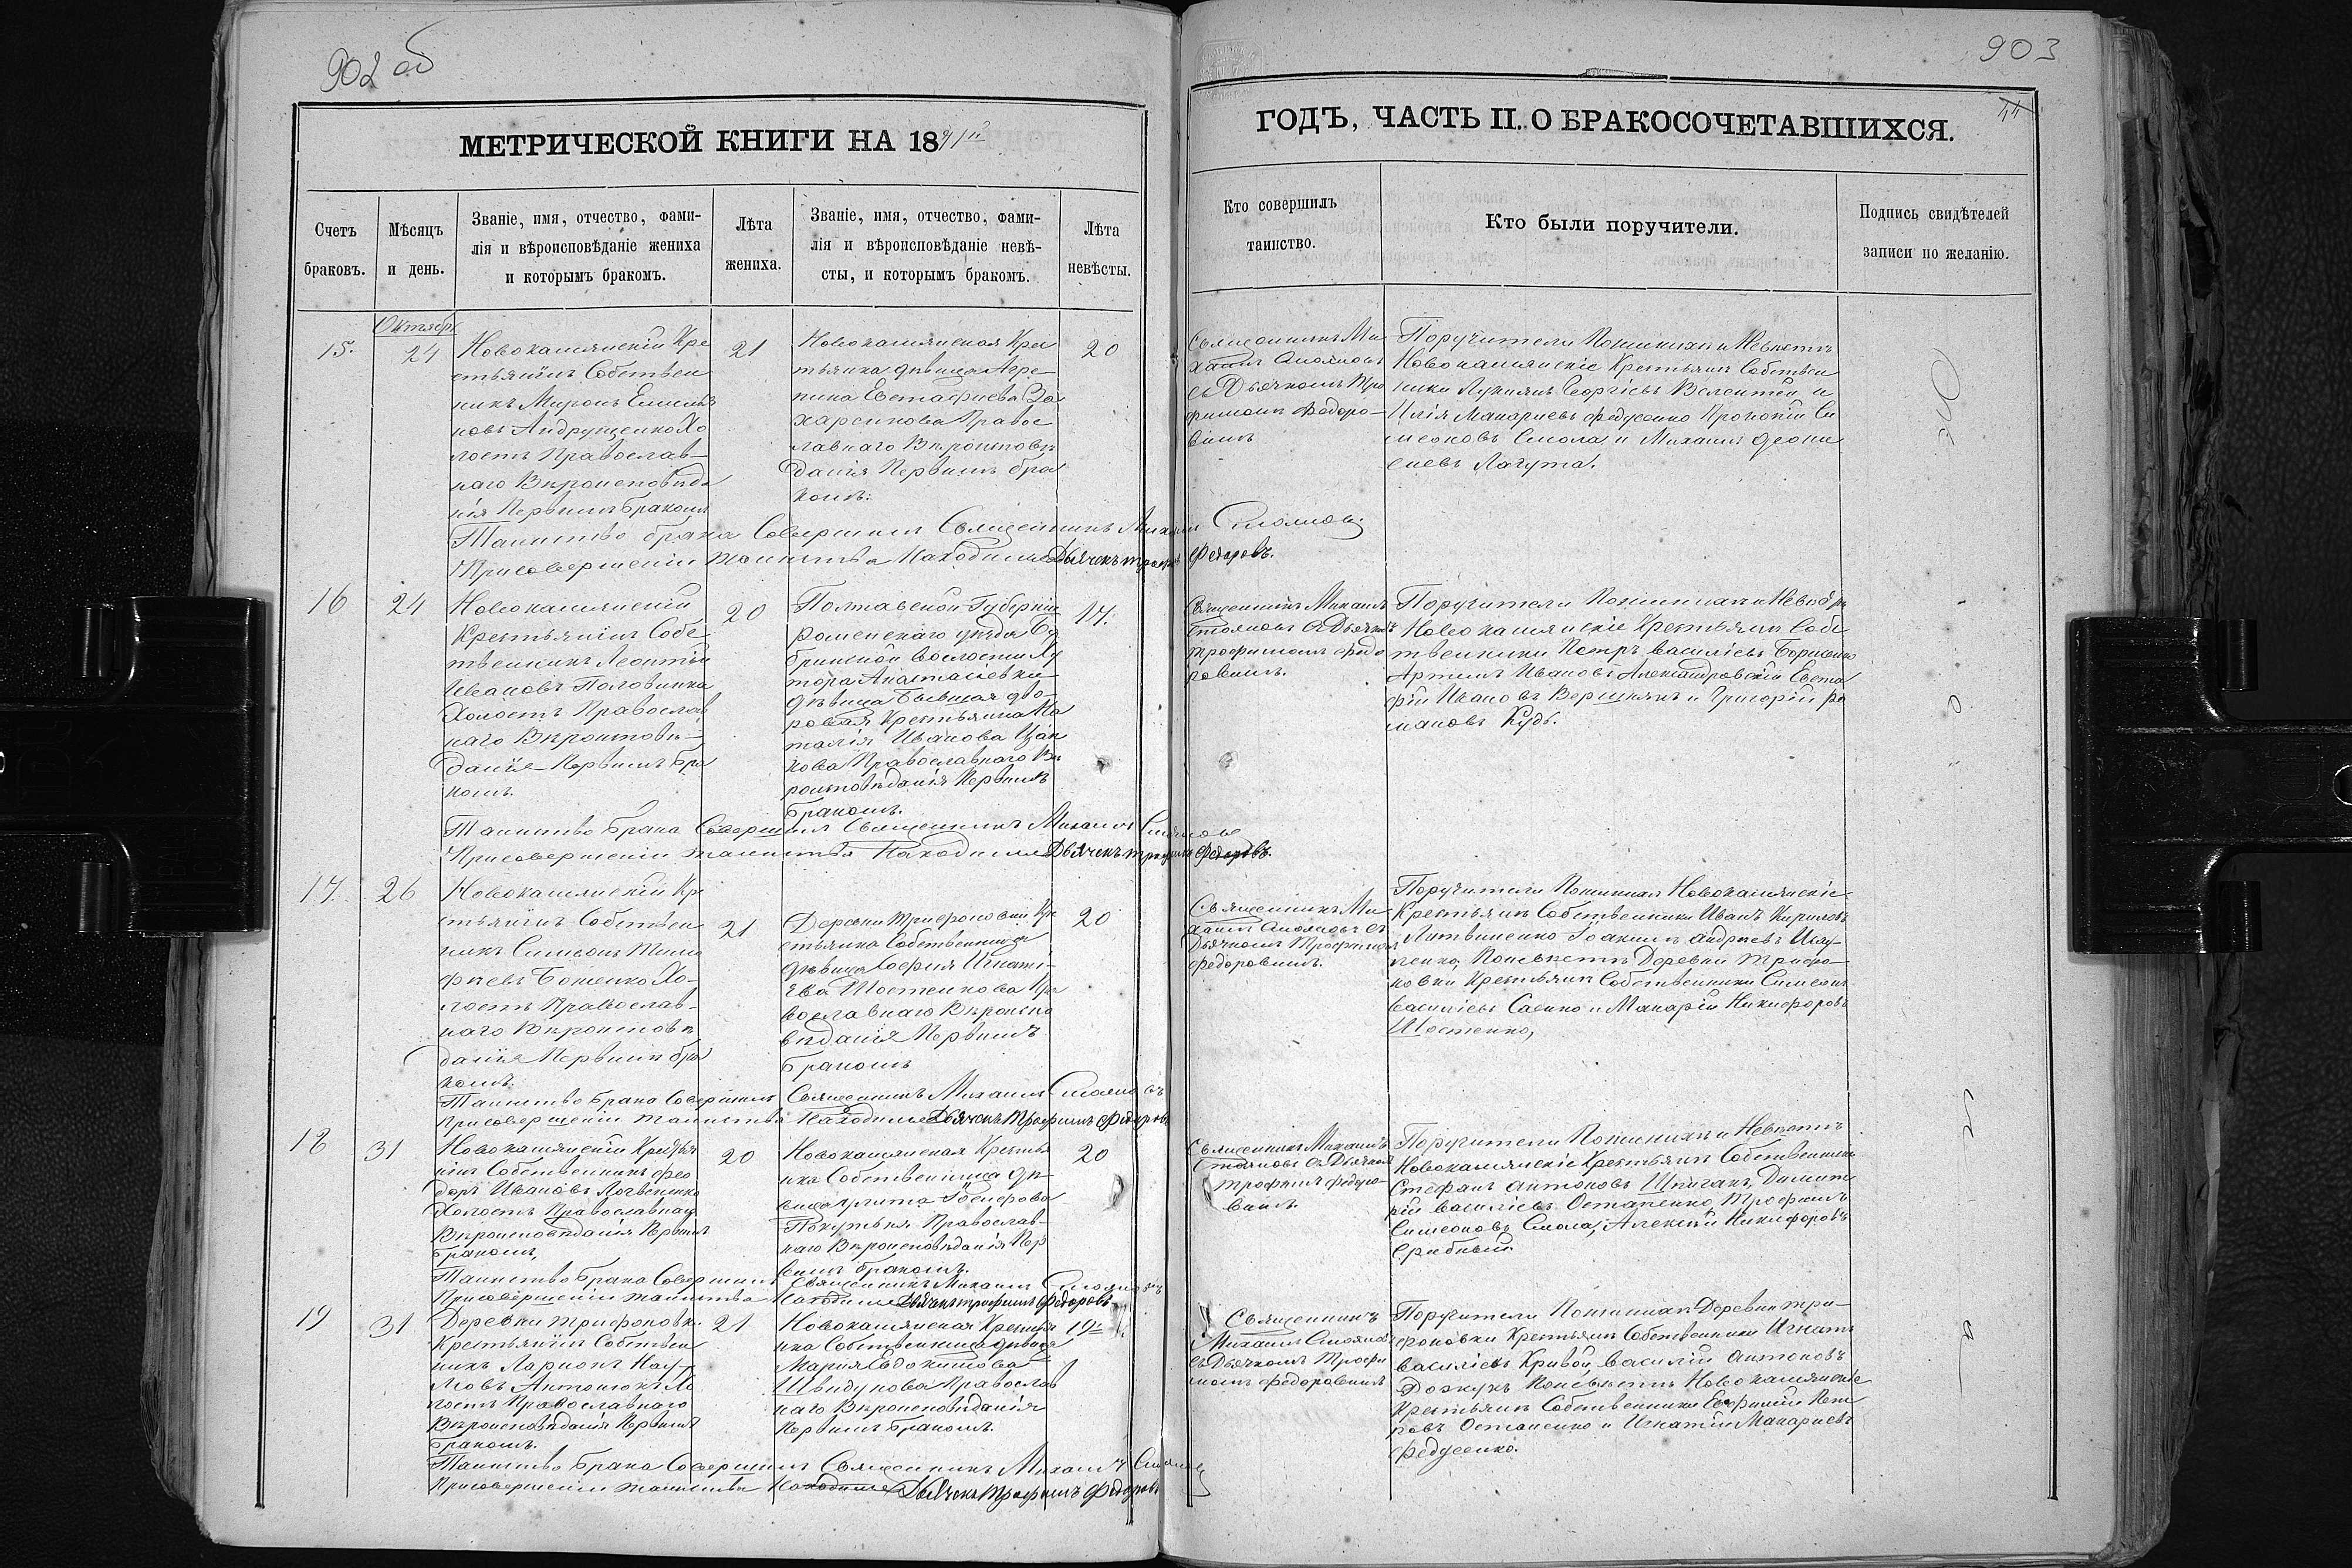 902 об
МЕТРИЧЕСКОЙ КНИГИ НА 18
Счетъ браковъ.
Мѣсяцъ и день.
Званіе, имя, отчество, фами-
лія и вѣроисповѣданіе жениха
и которымъ бракомъ.
Лѣта жениха.
Званіе, имя, отчество, фами-
лія и вѣроисповѣданіе невѣ-
сты, и которымъ бракомъ.
Лѣта невѣсты.
Октябр
15.
24
Новокашлянскій Кре
стьянинъ Собствен
никъ Миронъ
новъ Андрущенко Хо
лостъ Православ-
наго Вѣроисповѣда
нія Первымъ Бракомъ
21
Новокашлянская Крес
тьянка дѣвица Агре-
пина Евстафиева За
харенкова Правос
лавнаго Вѣроисповѣ
данія Первымъ бра
комъ.
20
Таинство брака Совершилъ Священникъ Михаилъ Стояновъ
Присовершеніи таинства Находился Дьячекъ Трофимъ Федоровъ.
16
24
Новокашлянскій
Крестьянинъ Собс
твенникъ Леонтій
Ивановъ Половинка
Холостъ Православ
наго Вѣроисповѣ-
данія Первымъ Бра
комъ.
20
Полтавской Губерніи
Роменскаго уѣзда
волости Ху
тора Анастасіевки
дѣвица Бывшая дво-
ровая Крестьянка На
талія Иванова
кова Православнаго Вѣ
роисповѣданія Первымъ
Бракомъ.
17.
Таинство Брака Совершилъ Священникъ Михаилъ Стояновъ
Присовершеніи таинства Находился Дьячекъ Трофимъ Федоровъ.
17.
26
Новокашлянскій Кре
стьянинъ Собствен
никъ Симеонъ Тимо
фѣевъ Боженко Хо-
лостъ Православ-
наго Вѣроисповѣ
данія Первымъ бра
комъ.
21
Деревни Трифоновки Кре
стьянка Собственница
дѣвица София Игнаті-
ева Шостенкова Пра
вославнаго Вѣроиспо
вѣданія Первымъ
Бракомъ
20
Таинство Брака Совершилъ Священникъ Михаилъ Стояновъ
Присовершеніи таинства Находился Дьячекъ Трофимъ Федоровъ
18
31
Новокашлянскій Крестья
нинъ Собственникъ Фео
доръ Ивановъ Логвененко
Холостъ Православнаго
Вѣроисповѣданія Первымъ
Бракомъ,
20
Новокашлянская Крестья
нка Собственница дѣ-
вица
Православ-
наго Вѣроисповѣданія Пер
вымъ бракомъ.
20
Таинство Брака Совершилъ Священникъ Михаилъ Стояновъ
Присовершеніи таинства Находился Дьячекъ Трофимъ Федоровъ
19
31
Деревни Трифоновки
Крестьянинъ Собствен
никъ Ларионъ Нау-
мовъ Антонюкъ Хо
лостъ Православнаго
Вѣроисповѣданія Первымъ
Бракомъ.
21
Новокашлянская Крестья
нка Собственница дѣвица
Мария Евдокимова
Швидунова Православ
наго Вѣроисповѣданія
Первымъ Бракомъ.
19
Таинство Брака Совершилъ Священникъ Михаилъ Стояновъ
Присовершеніи таинства Находился Дьячекъ Трофимъ Федоровъ
903
ГОДЪ, ЧАСТЬ II. О БРАКОСОЧЕТАВШИХСЯ.
Кто совершилъ
таинство.
Кто были поручители.
Подпись свидѣтелей
записи по желанію.
Священникъ Ми
хаилъ Стояновъ
съ Дьячкомъ Тро
фимомъ Федоро-
вымъ
Поручители По женихѣ и Невѣстѣ
Новокашлянскіе Крестьяне Собствен
ники Лукиянъ Георгіевъ и
Илія Макариевъ Федусенко Прокопій Си
меоновъ Смола и Михаилъ
сиевъ Лагута.
Священникъ Михаилъ
Стояновъ съ Дьячкомъ
Трофимомъ Федо
ровымъ.
Поручители По женихѣ и Невѣстѣ
Новокашлянскіе Крестьяне Собс
твенники Петръ Василіевъ Борисенко
Артемъ Ивановъ Александровскій Евста
фій Ивановъ Вершнякъ и Григорій Ро
мановъ Кудь.
Священникъ Ми
хаилъ Стояновъ съ
Дьячкомъ Трофимомъ
Федоровымъ.
Поручители По женихѣ Новокашлянскіе
Крестьяне Собственники Иванъ Кириловъ
Литвиненко Іоакимъ Андреевъ
ленко, По невѣстѣ Деревни Трифо-
новки Крестьяне Собственники Симеонъ
Василіевъ Саенко и Макарій Никифоровъ
Шостенко,
Священникъ Михаилъ
Стояновъ съ Дьячкомъ
Трофимъ Федоро-
вымъ.
Поручители По женихѣ и Невѣстѣ
Новокашлянскіе Крестьяне Собственники
Стефанъ Антоновъ Димит
рій Василіевъ Остапенко, Трофимъ
Симеоновъ Смола, Алексій Никифоровъ
Срибный
Священникъ
Михаилъ Стояновъ
съ Дьячкомъ Трофи
момъ Федоровымъ
Поручители По женихѣ Деревни Три-
фоновки Крестьяне Собственники Игнатъ
Василіевъ Кривой, Василій Антоновъ
По невѣстѣ Новокашлянскіе
Крестьяне Собственники Евфимій Пет
ровъ Остапенко и Игнатій Макариевъ
Федусенко.